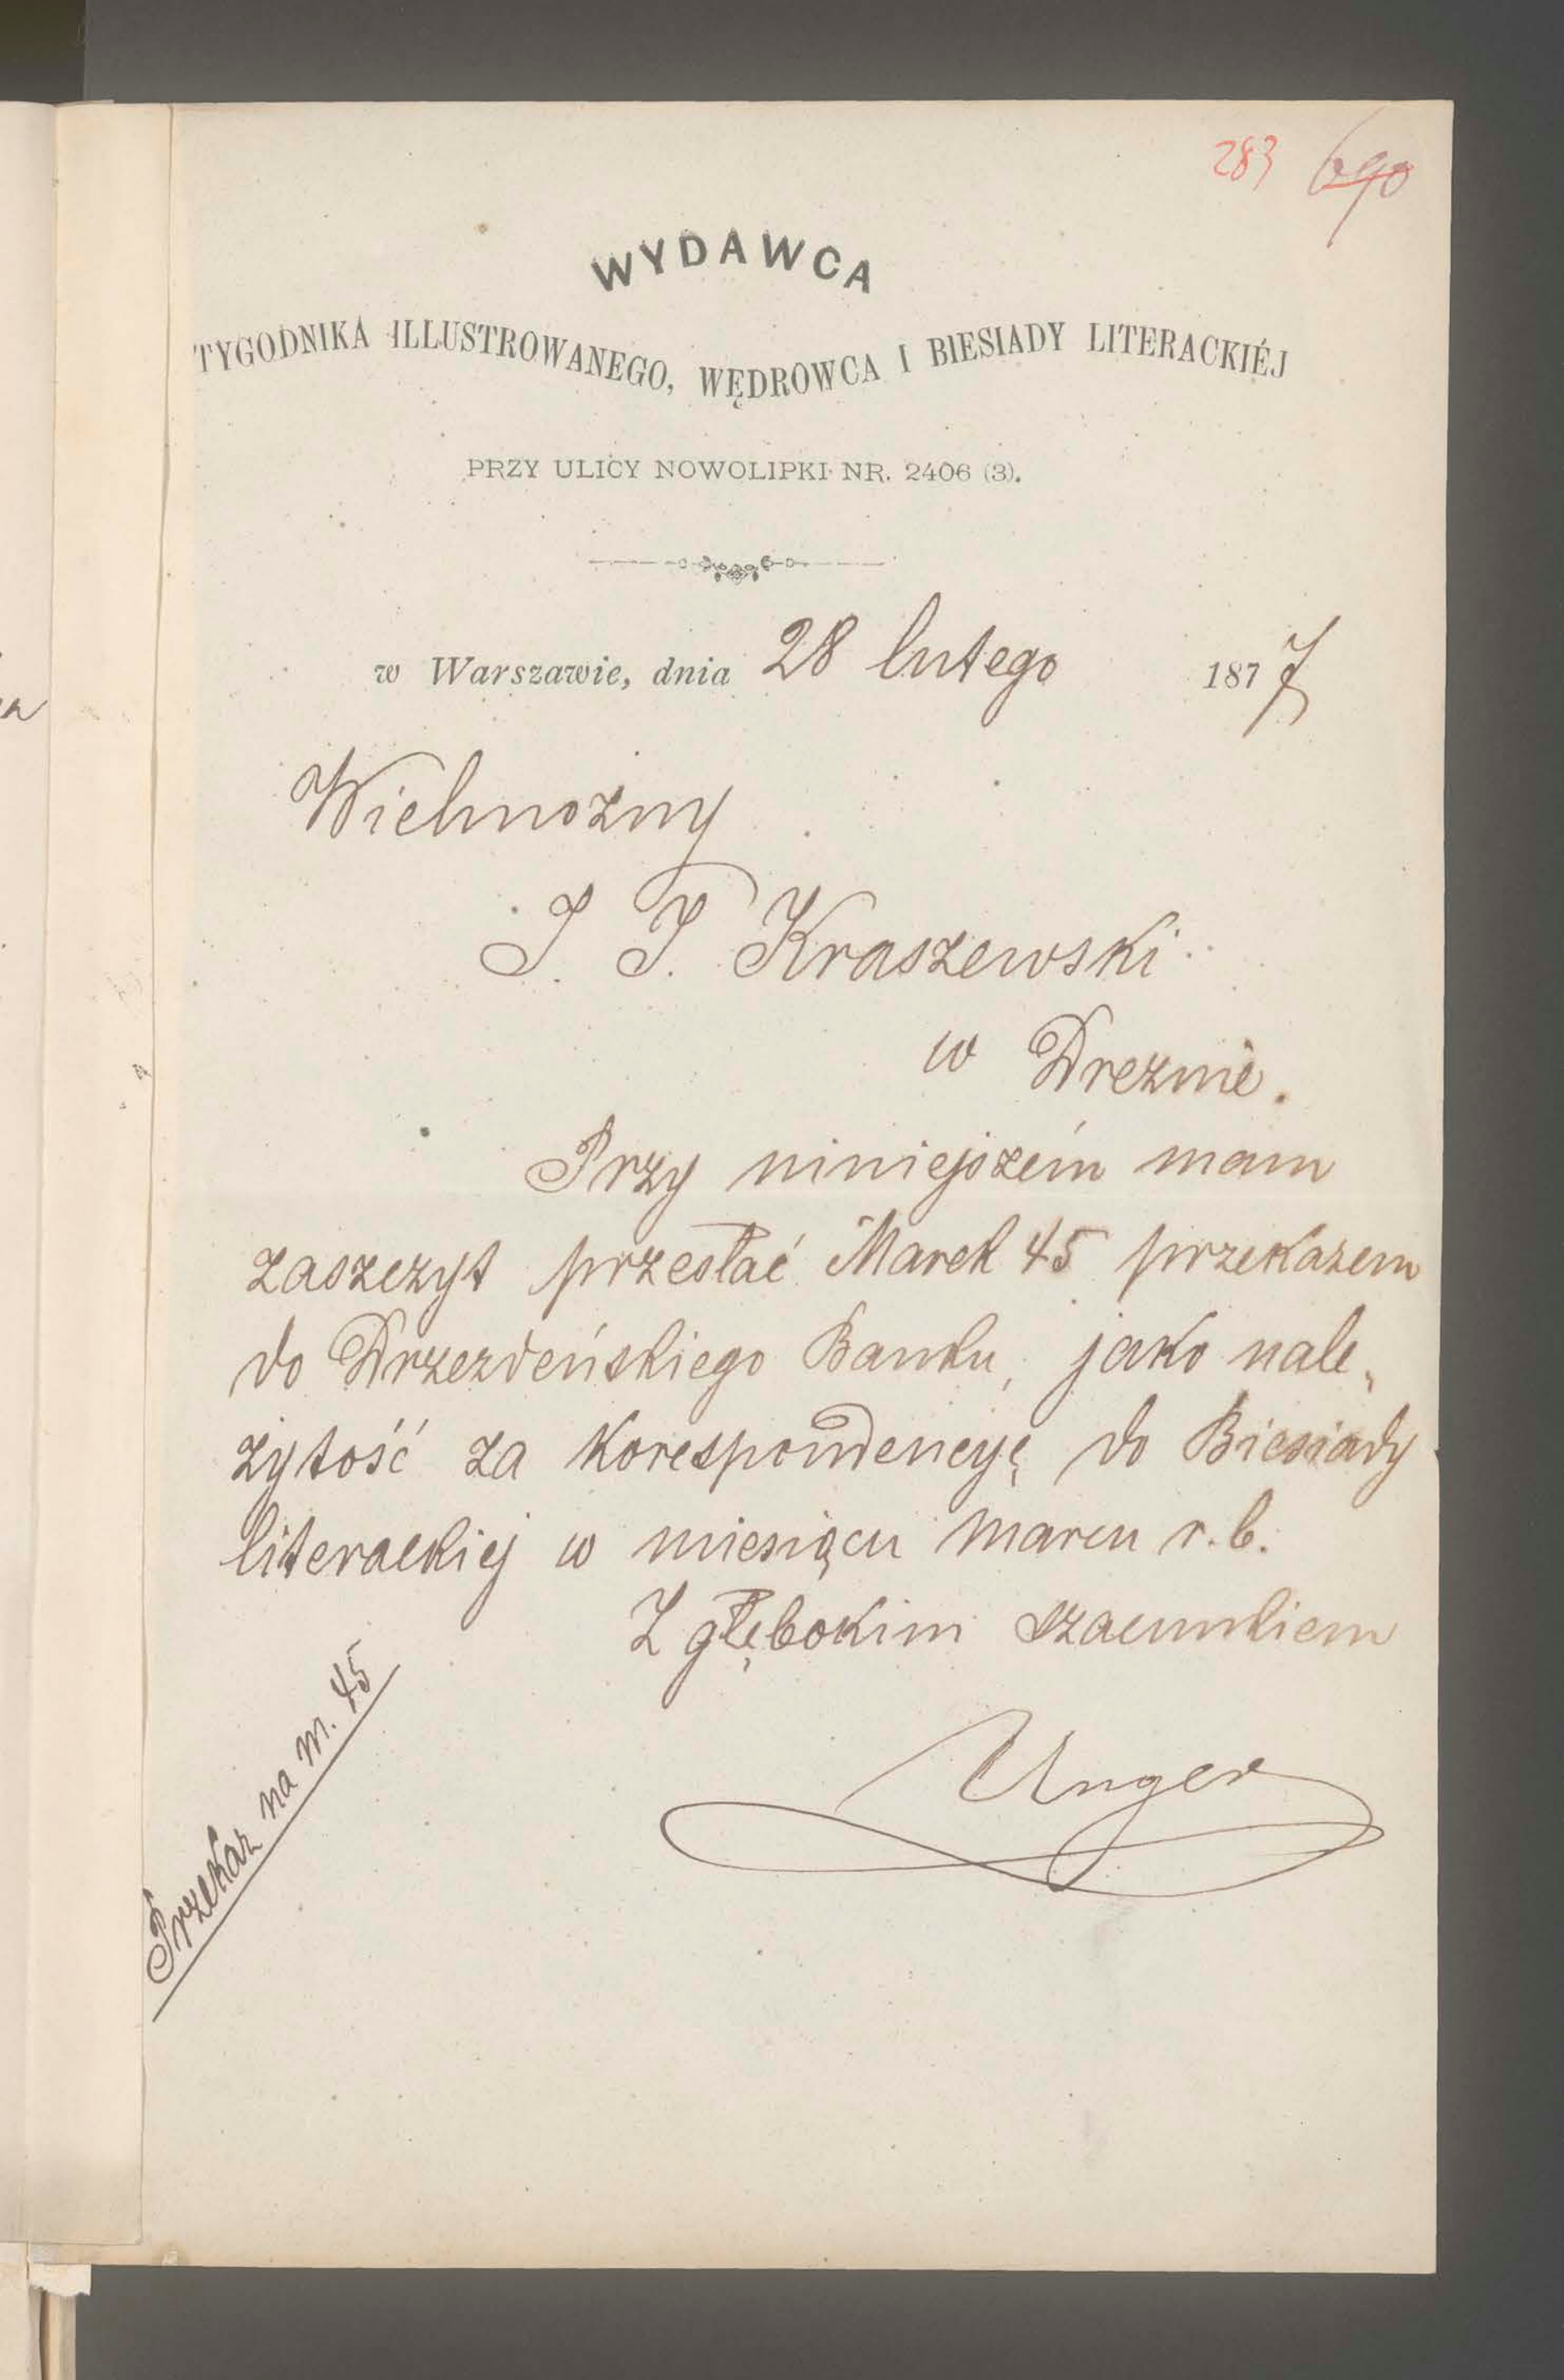 283 690
WYDAWCA
TYGODNIKA ILLUSTROWANEGO, WĘDROWCA I BIESIADY LITERACKIÉJ
PRZY ULICY NOWOLIPKI NR. 2406 (3).
w Warszawie, dnia 28 lutego 1877
Wielmożny
J. I. Kraszewski
w Dreznie.
Przy niniejszém mam
zaszczyt przesłać Marek 45 przekazem
do Drzezdeńskiego Banku, jako nale„
żytość za korespondencyę do Biesiady
literackiej w miesiącu marcu r. b.
Z głębokim szacunkiem
Unger
Przekaz na m. 45